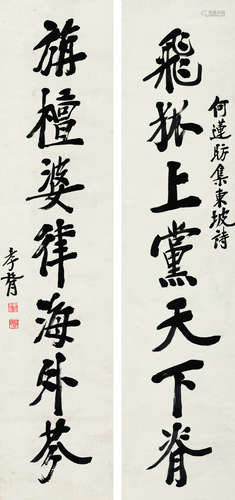 何蓮舫集東坡詩
飛狐上黨天下脊
旃檀婆律海外芬
孝胥